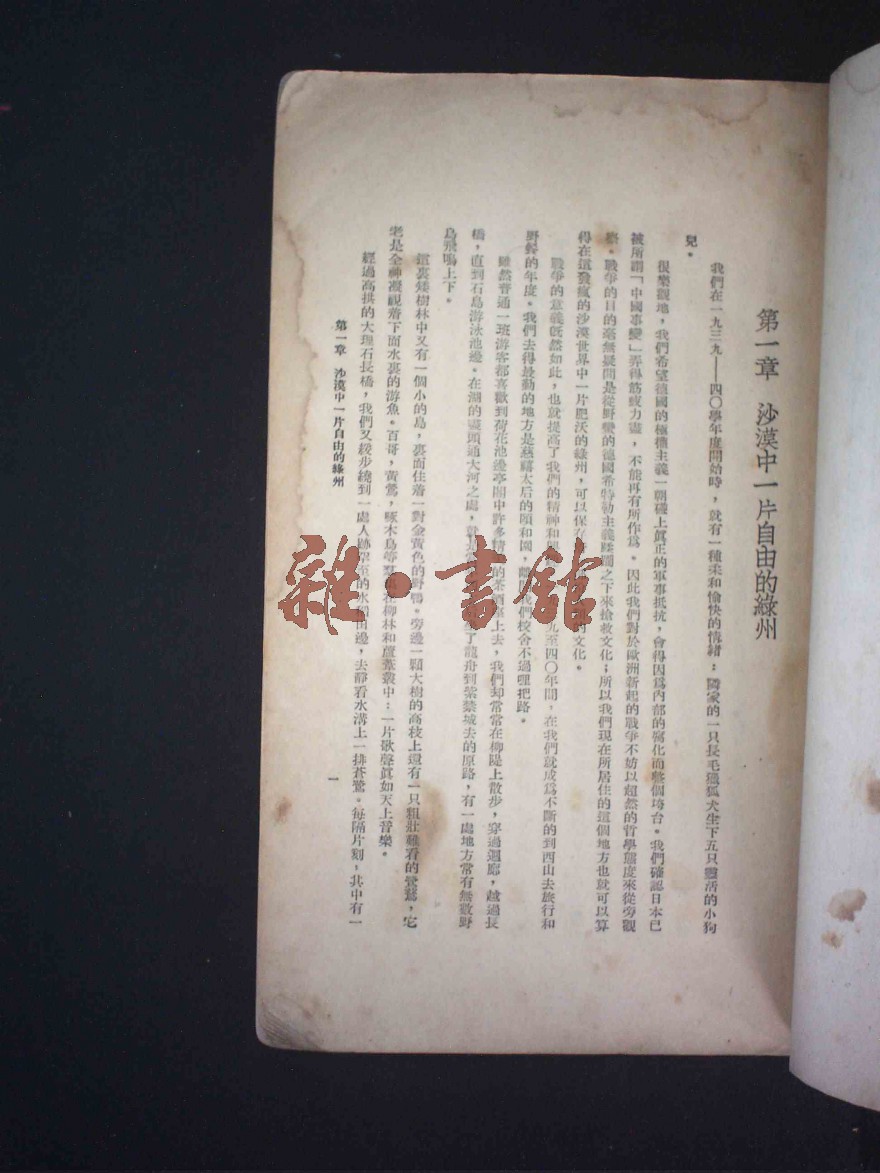 第一章　沙漠中一片自由的綠州
我們在一九三九——四〇學年度開始時，就有一種柔和愉快的情緒：隣家的一只長毛獵狐犬生下五只靈活的小狗
兒。
很樂觀地，我們希望德國的極權主義一朝碰上眞正的軍事抵抗，會得因爲內部的腐化而整個垮台。我們確認日本已
被所謂「中國事變」弄得筋疲力盡，不能再有所作爲。因此我們對於歐洲新起的戰爭不妨以超然的哲學態度來從旁觀
察。戰爭的目的毫無疑問是從野蠻的德國希特勒主義蹂躪之下來搶救文化；所以我們現在所居住的這個地方也就可以算
得在這發瘋的沙漠世界中一片肥沃的綠州，可以保存 文化。
戰爭的意義旣然如此，也就提高了我們的精神和 九至四〇年間，在我們就成爲不斷的到西山去旅行和
野餐的年度。我們去得最勤的地方是慈禧太后的頤和園， 我們校舍不過哩把路。
雖然普通一班游客都喜歡到荷花池邊亭閣中許多 的茶 上去，我們却常常在柳隄上散步，穿過迴廊，越過長
橋，直到石島游泳池邊。在湖的盡頭通大河之處， 了龍舟到紫禁城去的原路，有一處地方常有無數野
鳥飛鳴上下。
這裏矮樹林中又有一個小的島，裏面住着一對金黃色的野鴨。旁邊一顆大樹的高枝上還有一只粗壯難看的鶿鷺，它
老是全神凝視着下面水裏的游魚。百哥，黃鶯，啄木鳥等 在柳林和蘆葦叢中：一片歌聲眞如天上音樂。
經過高拱的大理石長橋，我們又緩步繞到一處人跡罕至的水稻田邊，去靜看水溝上一排蒼鷺。每隔片刻，其中有一
第一章　沙漠中一片自由的綠州
一
雜·書館